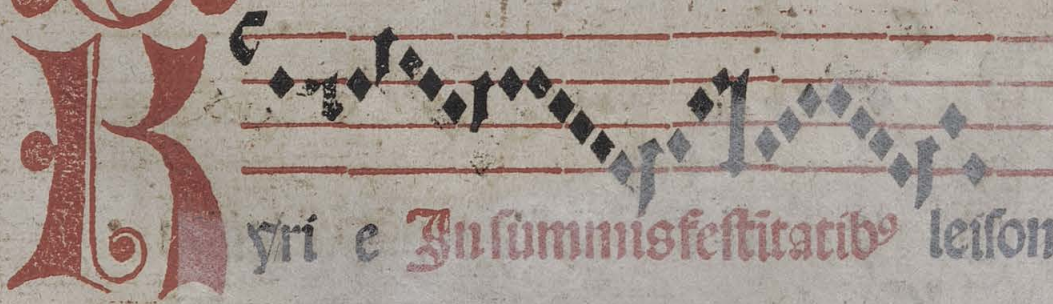 Kyri e In ſummis feſtitatibꝰ leiſon